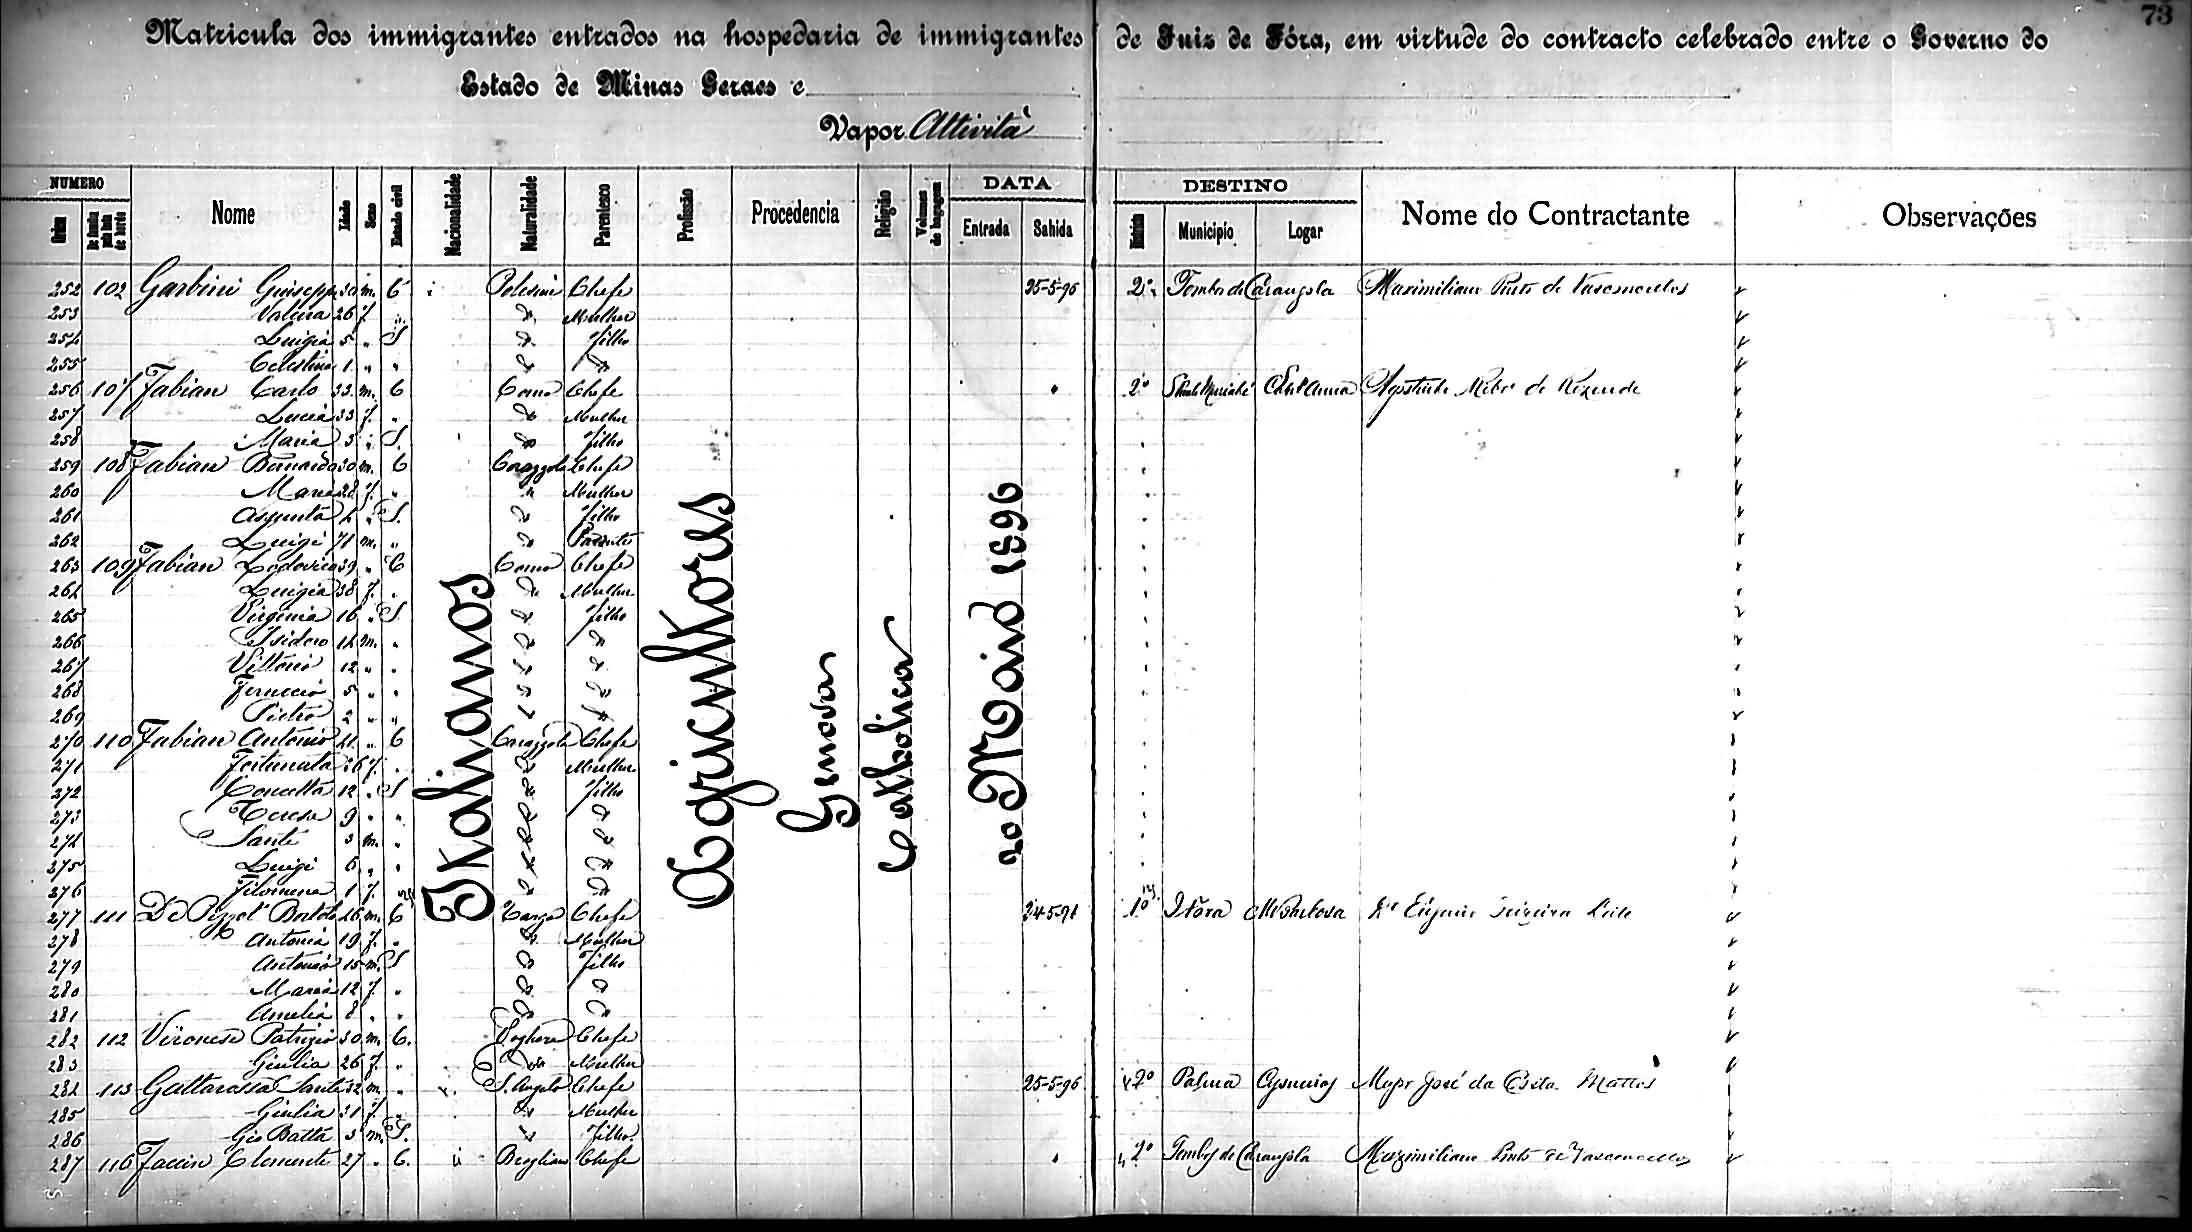 73
Matricula dos immigrantes entrados na hospedaria de immigrantes de Juiz de Fóra, em virtude do contracto celebrado entre o Governo do
Estado de Minas Geraes e
Vapor Attività
NUMERO DATA DESTINO
Ordem Nome Idade Sexo Estado civil Nacionalidade Naturalidade Parentesco Profissão Procedencia Religião Volumes de bagagem Entrada Sahida Districto Municipio Logar Nome do Contractante Observações
Italianos
Agricultores
Genova
Catholica
20 Maio 1896
252 102 Garbini Giuseppe m. C Polesine Chefe 25-5-96 2º Tombos de Carangola Maximiliano Pinto de Vasconcellos
253 26 f. " Mulher
254 Luigia 5 " S Filho
255 Celestina 1 " "
256 107 Fabian Carlo 33 m. C Como Chefe " 2º Sant'Anna Ribº de Rezende
257 Lucia 33 f. " Mulher
258 Maria 3 " S. Filho
259 108 Fabian Bernardo 30 m. C Chefe
260 Maria 28 f. " " Mulher
261 Assunta " S. Filho
262 Luigi 71 m. " Parente
263 109 Fabian Lodovico 39 " C Como Chefe
264 Luigia 38 f. " Mulher
265 Virginia 16 " S Filho
266 Isidoro 14 m. "
267 Vittorio 12 " "
268 Ferruccio 5 " "
269 Pietro 2 " "
270 110 Fabian Antonio 41 " C Chefe
271 Fortunata 36 f. " Mulher
272 Concetta 12 " S Filho
273 Teresa 9 " "
274 Santi 3 m. "
275 Luigi 6 " "
276 Filomena 1 f.
277 111 De Pizzol Bortolo m. C Chefe 24-5-96 1º J Fóra M Barbosa Drº Eugenio Teixeira Leite
278 Antonia 19 f. " Mulher
279 Antonio 15 m. S Filho
280 Maria 12 f. "
281 Amelia 8 " "
282 112 Veronese Patrizio 30 m. C. Chefe
283 Giulia 26 f. " Mulher
284 113 Guttarossa Santi 32 m. " S. Angelo Chefe 25-5-96 2º Palma Cysneiros Major José da Costa Mattos
285 Giulia 31 f. " Mulher
286 Gio Batta 3 m. S. Filho
287 116 Faccin Clemente 27 " C. Chefe " 2º Tombos de Carangola Maximiliano Pinto de Vasconcellos